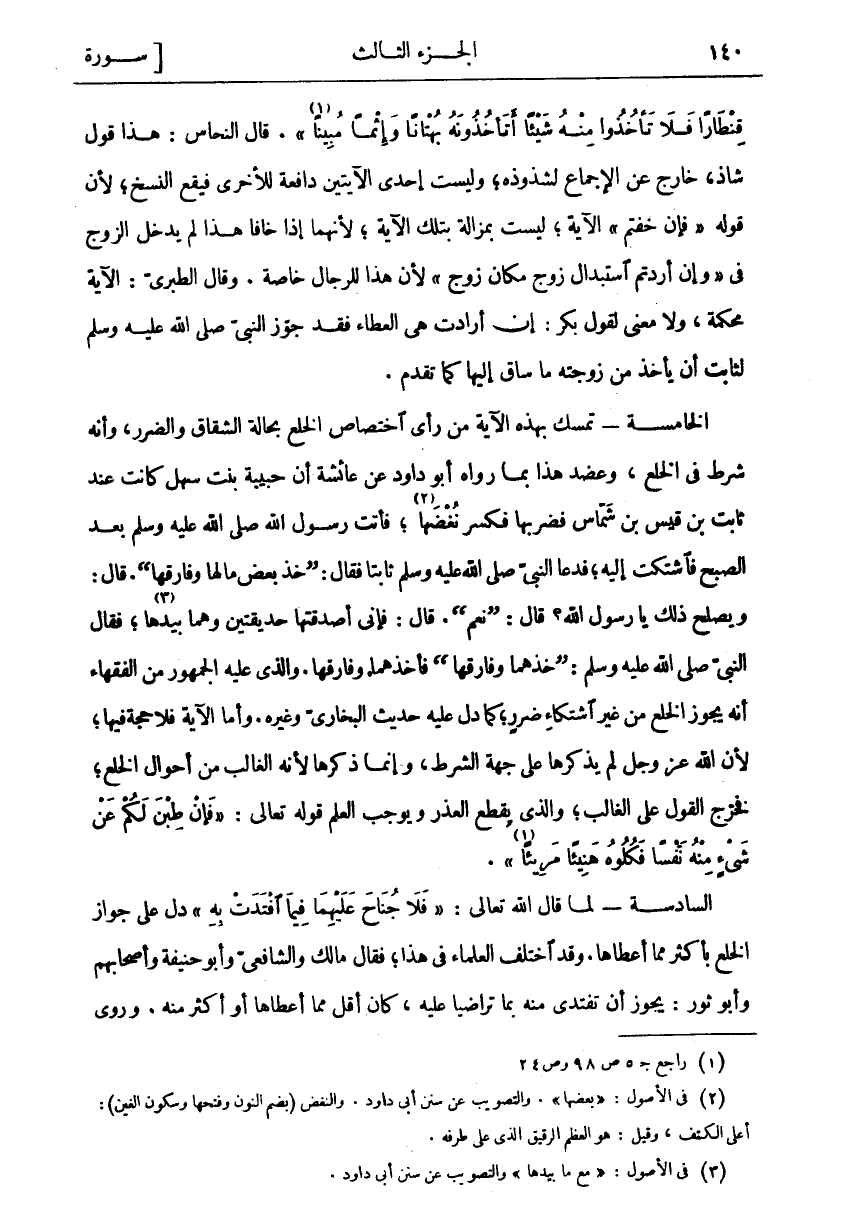 ١٤٠ الجـــزء الثـــالث [ ســـورة
قِنْطَارًا فَـلَا تَأْخُذُوا مِنْـهُ شَيْئًا أَتَأْخُذُونَهُ بُهْتَانًا وَإِثْمًـا مُبِينًا (١) » . قال النحاس : هـذا قول
شاذ، خارج عن الإجماع لشذوذه؛ وليست إحدى الآيتين دافعة للأخرى فيقع النسخ؛ لأن
قوله « فإن خفتم » الآية ؛ ليست بمزالة بتلك الآية ؛ لأنهما إذا خافا هـذا لم يدخل الزوج
فى « وإن أردتم ٱستبدال زوج مكان زوج » لأن هذا للرجال خاصة . وقال الطبرىّ : الآية
محكمة ، ولا معنى لقول بكر : إنــ أرادت هى العطاء فقـد جوّز النبىّ صلى الله عليـه وسلم
لثابت أن يأخذ من زوجته ما ساق إليها كما تقدم .
الخامســة – تمسك بهذه الآية من رأى ٱختصاص الخلع بحالة الشقاق والضرر، وأنه
شرط فى الخلع ، وعضد هذا بمـا رواه أبو داود عن عائشة أن حبيبة بنت سهل كانت عند
ثابت بن قيس بن شَمّاس فضربها فـكسر نُغْضَها (٢) ؛ فأتت رسـول الله صلى الله عليه وسلم بعـد
الصبح فٱشتكت إليه؛ فدعا النبىّ صلى الله عليه وسلم ثابتا فقال : ”خذ بعض مالها وفارقها“. قال :
ويصلح ذلك يا رسول الله؟ قال : ”نعم“. قال : فإنى أصدقتها حديقتين وهما بيدها (٣) ؛ فقال
النبىّ صلى الله عليه وسلم : ”خذهما وفارقها“ فأخذهما وفارقها. والذى عليه الجمهور من الفقهاء
أنه يجوز الخلع من غير ٱشتكاءِ ضررٍ؛ كما دل عليه حديث البخارىّ وغيره. وأما الآية فلا حجة فيها؛
لأن الله عـز وجل لم يذكرها على جهة الشرط، و إنمـا ذكرها لأنه الغالب من أحوال الخلع؛
فخرّج القول على الغالب؛ والذى يقطع العذر و يوجب العلم قوله تعالى : «فَإِنْ طِبْنَ لَكُمْ عَنْ
شَىْءٍ مِنْهُ نَفْسًا فَكُلُوهُ هَنِيئًا مَرِيئًا (١) » .
السادســة – لمـا قال الله تعالى : « فَلَا جُنَاحَ عَلَيْهِمَا فِيمَا ٱفْتَدَتْ بِهِ » دل على جواز
الخلع بأكثر مما أعطاها. وقد ٱختلف العلماء فى هذا؛ فقال مالك والشافعىّ وأبو حنيفة وأصحابهم
وأبو ثور : يجوز أن تفتدى منه بما تراضيا عليه ، كان أقل مما أعطاها أو أكثر منه . وروى
(١) راجع جـ ٥ ص ٩٨ وص ٢٤
(٢) فى الأصول : «بعضها» . والتصويب عن سنن أبى داود . والنغض (بضم النون وفتحها وسكون الغين) :
أعلى الكتف ، وقيل : هو العظم الرقيق الذى على طرفه .
(٣) فى الأصول : « مع ما بيدها » والتصويب عن سنن أبى داود .